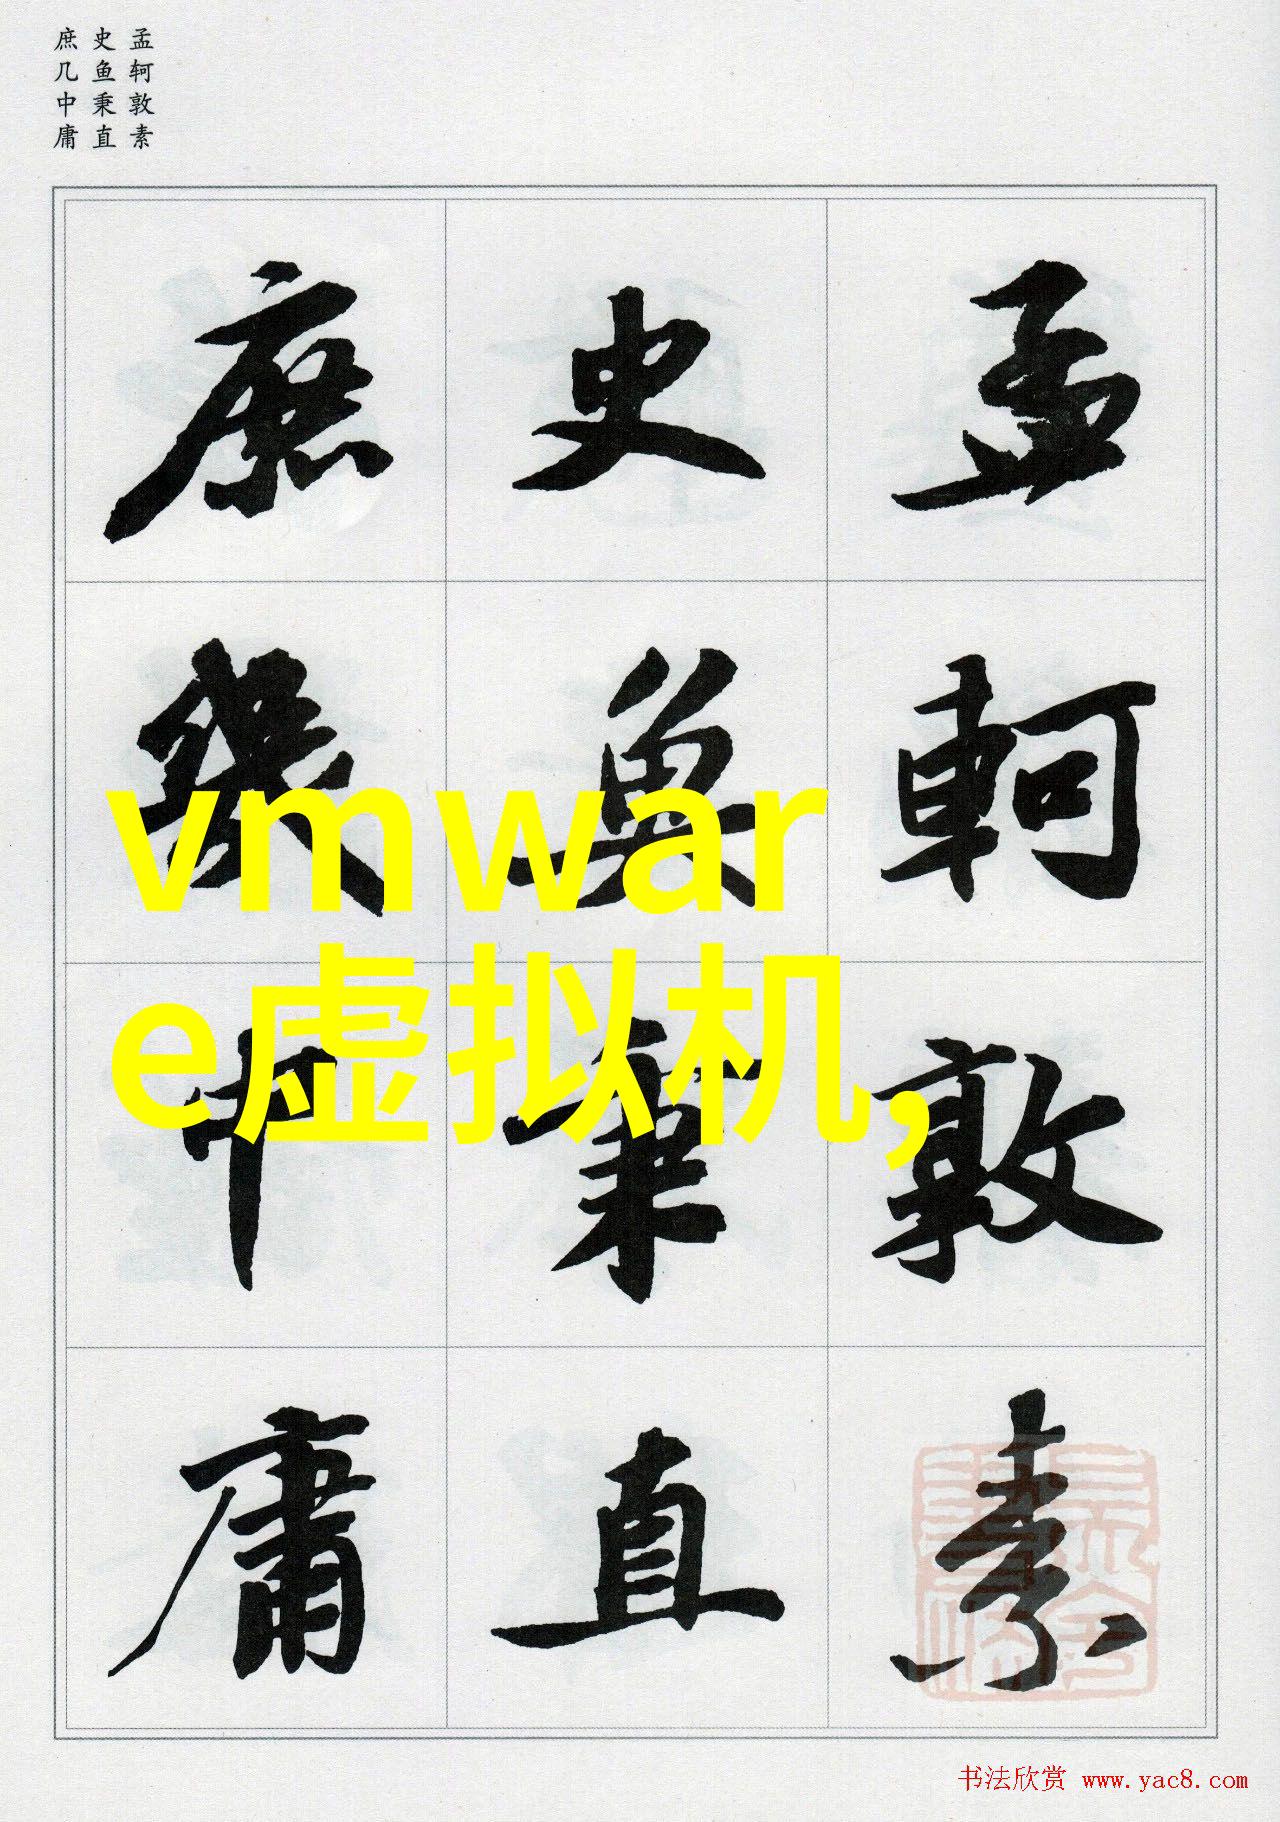 孟轲敦素
史鱼秉直
庶几中庸
孟軻敦素
史魚秉直
庶幾中庸
vmwar
e虚拟机,
书法欣赏 www.yac8.com